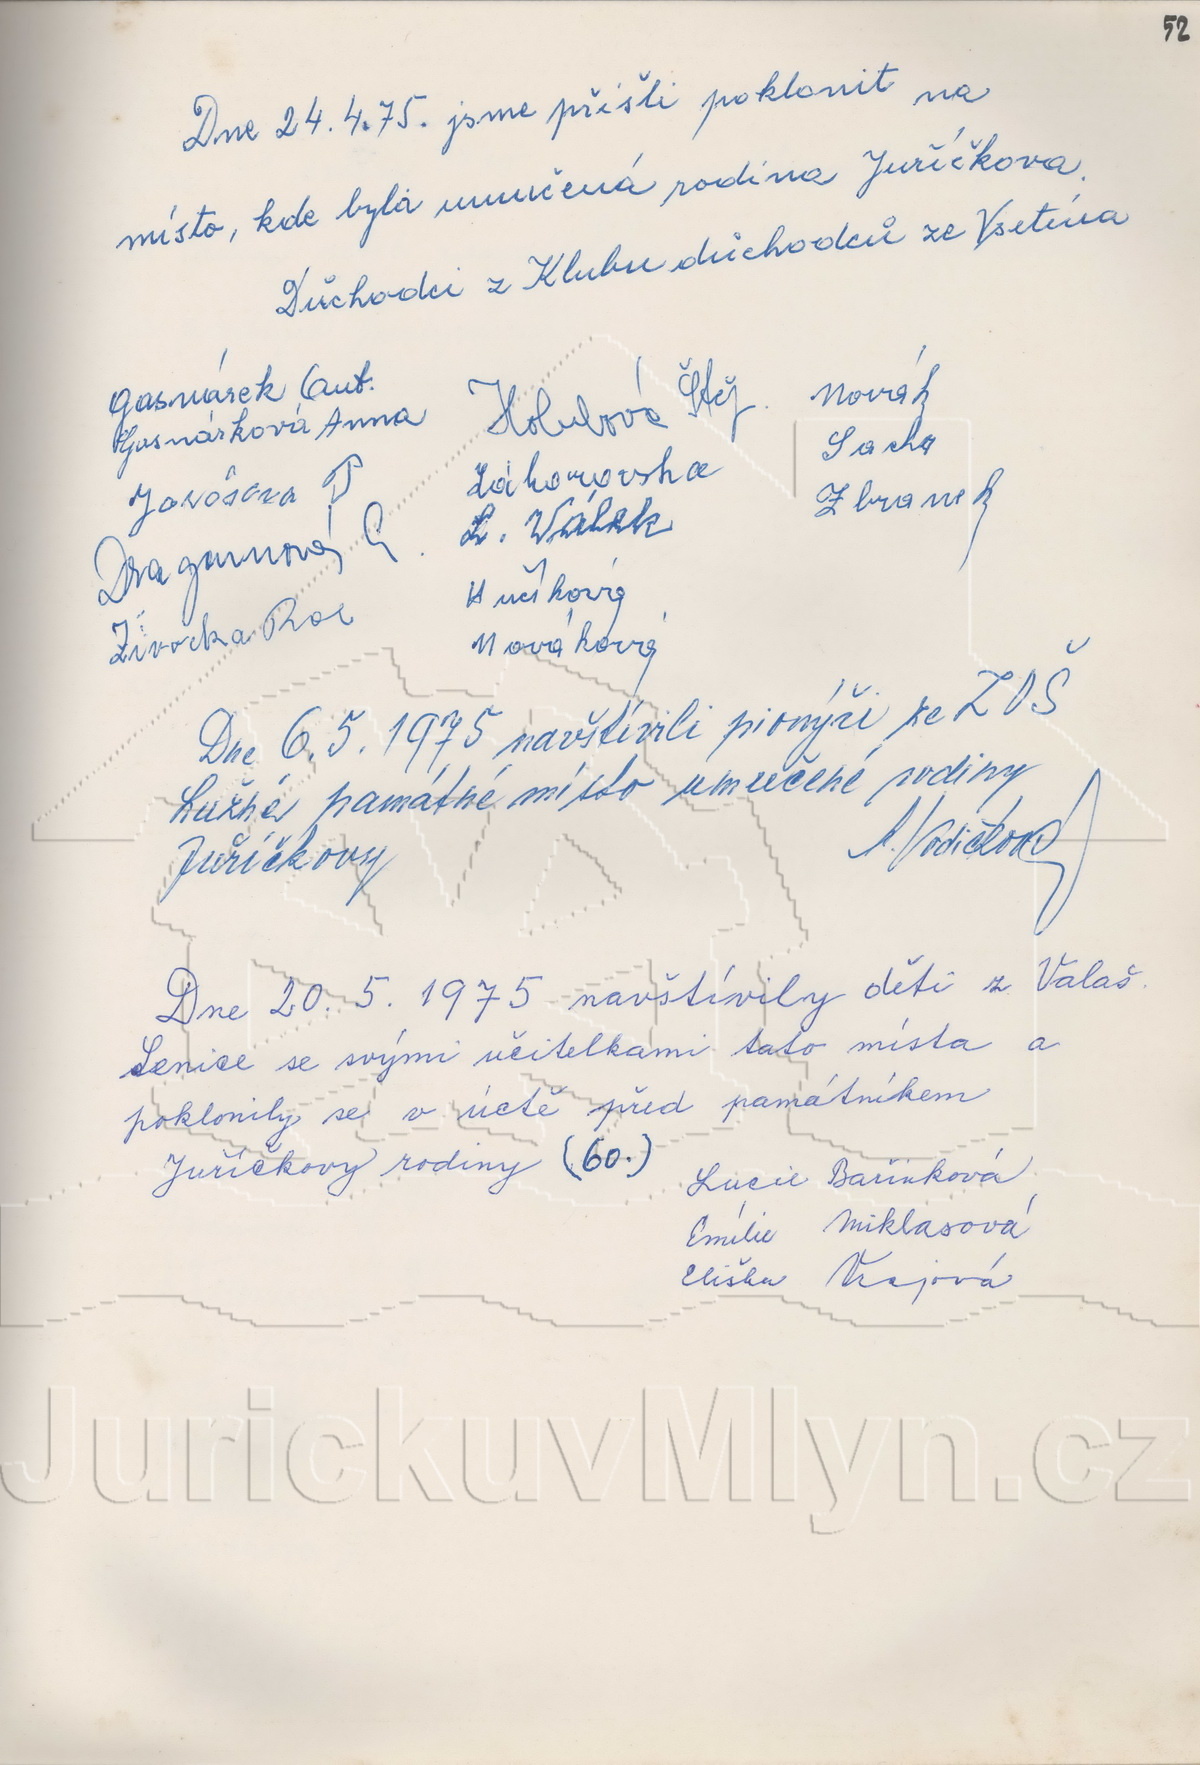 52
Dne 24.4.75. jsme přišli poklonit na
místo, kde byla umučená rodina Juříčkova.
Důchodci z Klubu důchodců ze Vsetína
Gasnárek Ant.
Gasnárková Anna
Holubová Štěp.
Novák
Sacha
Zbranek
L. Válek
Hučíková
Nováková
Dne 6.5.1975 navštívili pionýři ze ZDŠ
Lužná památné místo umučené rodiny
Juříčkovy
A. Vodičková
Dne 20.5.1975 navštívily děti z Valaš.
Senice se svými učitelkami tato místa a
poklonily se v úctě před památníkem
Juříčkovy rodiny (60.)
Lucie Bařinková
Emílie Miklasová
Eliška Vrajová
JurickuvMlyn.cz